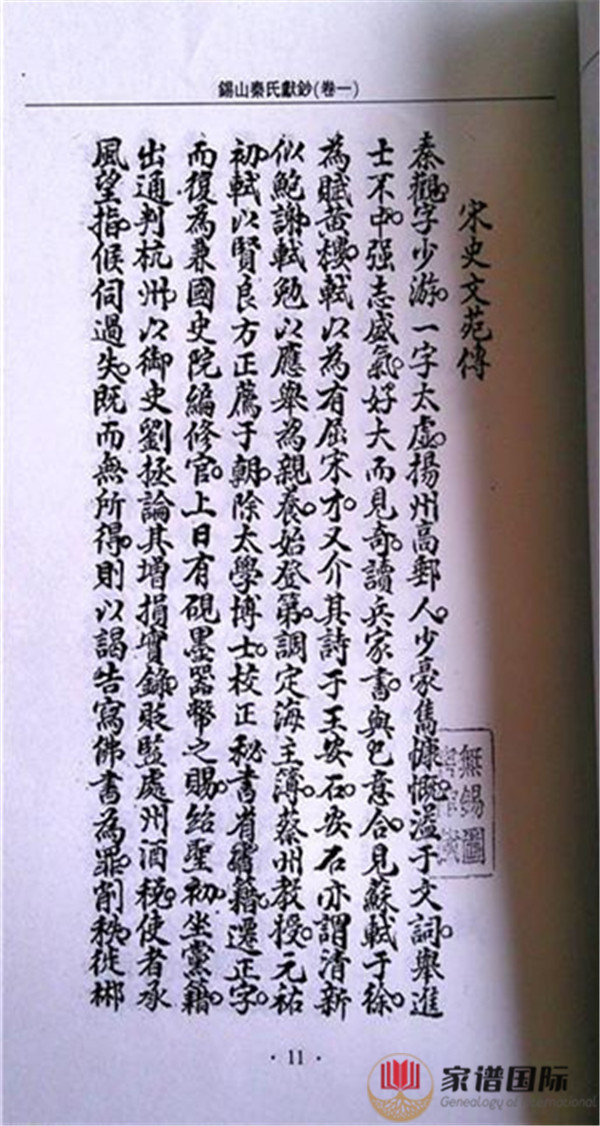 錫山秦氏獻鈔(卷一)
宋史文苑傳
秦觀字少游。一字太虛。揚州高郵人。少豪雋慷慨。溢于文詞。舉進
士不中。强志盛氣。好大而見奇。讀兵家書。與己意合。見蘇軾于徐。
為賦黃樓。軾以為有屈宋才。又介其詩于王安石。安石亦謂清新
似鮑謝。軾勉以應舉為親養。始登第。調定海主簿。蔡州教授。元祐
初。軾以賢良方正薦于朝。除太學博士。校正秘書省書籍。遷正字。
而復為兼國史院編修官。上日有硯墨器幣之賜。紹聖初。坐黨籍。
出通判杭州。以御史劉拯論其增損實錄。貶監處州酒稅。使者承
風望指。候伺過失。既而無所得。則以謁告寫佛書為罪。削秩徙郴
無錫圖
· 11 ·
家谱国际
Genealogy of International